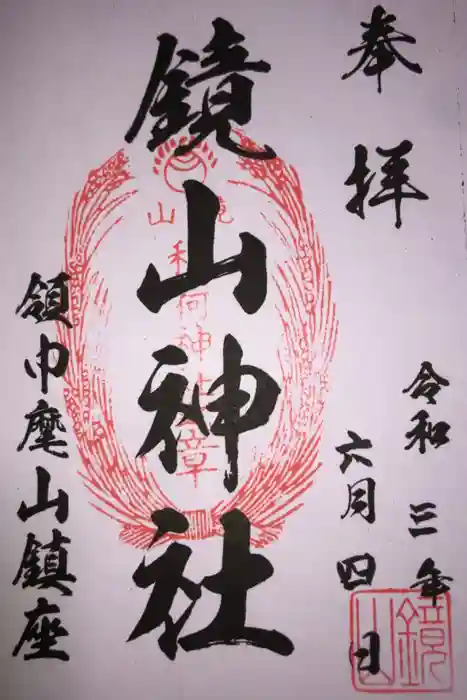 奉拝
令和三年
六月四日
鏡山神社
領巾麾山鎮座
鏡山
鏡山
稲荷神社
章